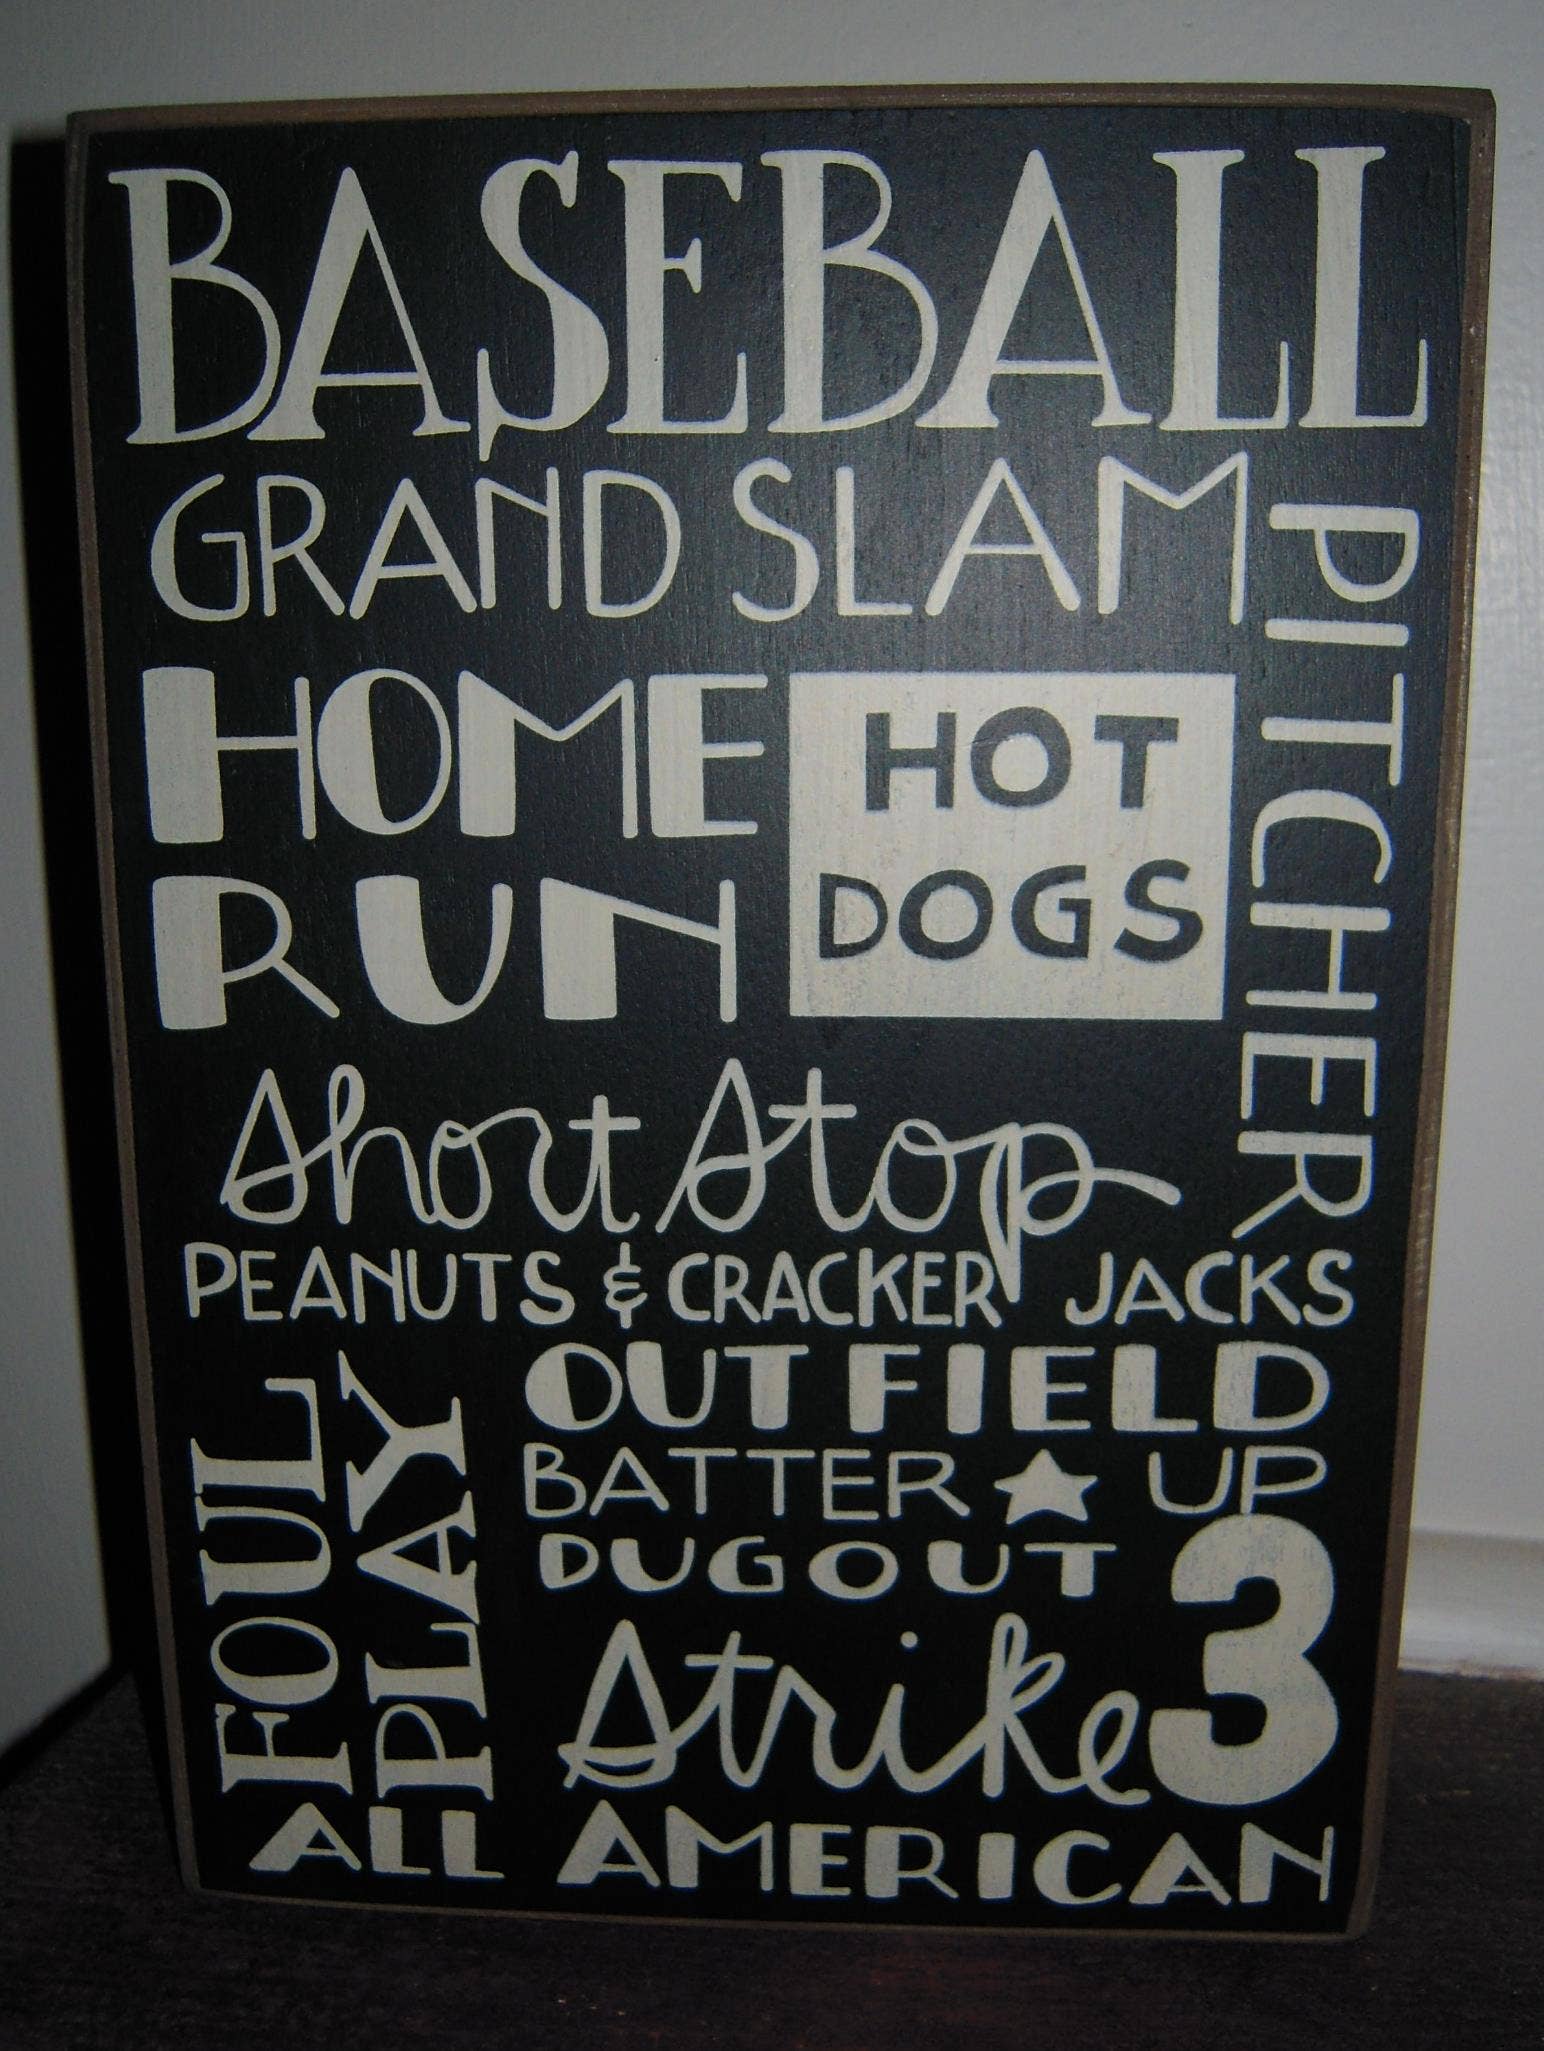 BASEBALL
GRAND SLAM
PITCHER
HOME
RUN
HOT
DOGS
Short Stop
PEANUTS & CRACKER JACKS
FOUL
PLAY
OUTFIELD
BATTER ★ UP
DUGOUT
Strike 3
ALL AMERICAN